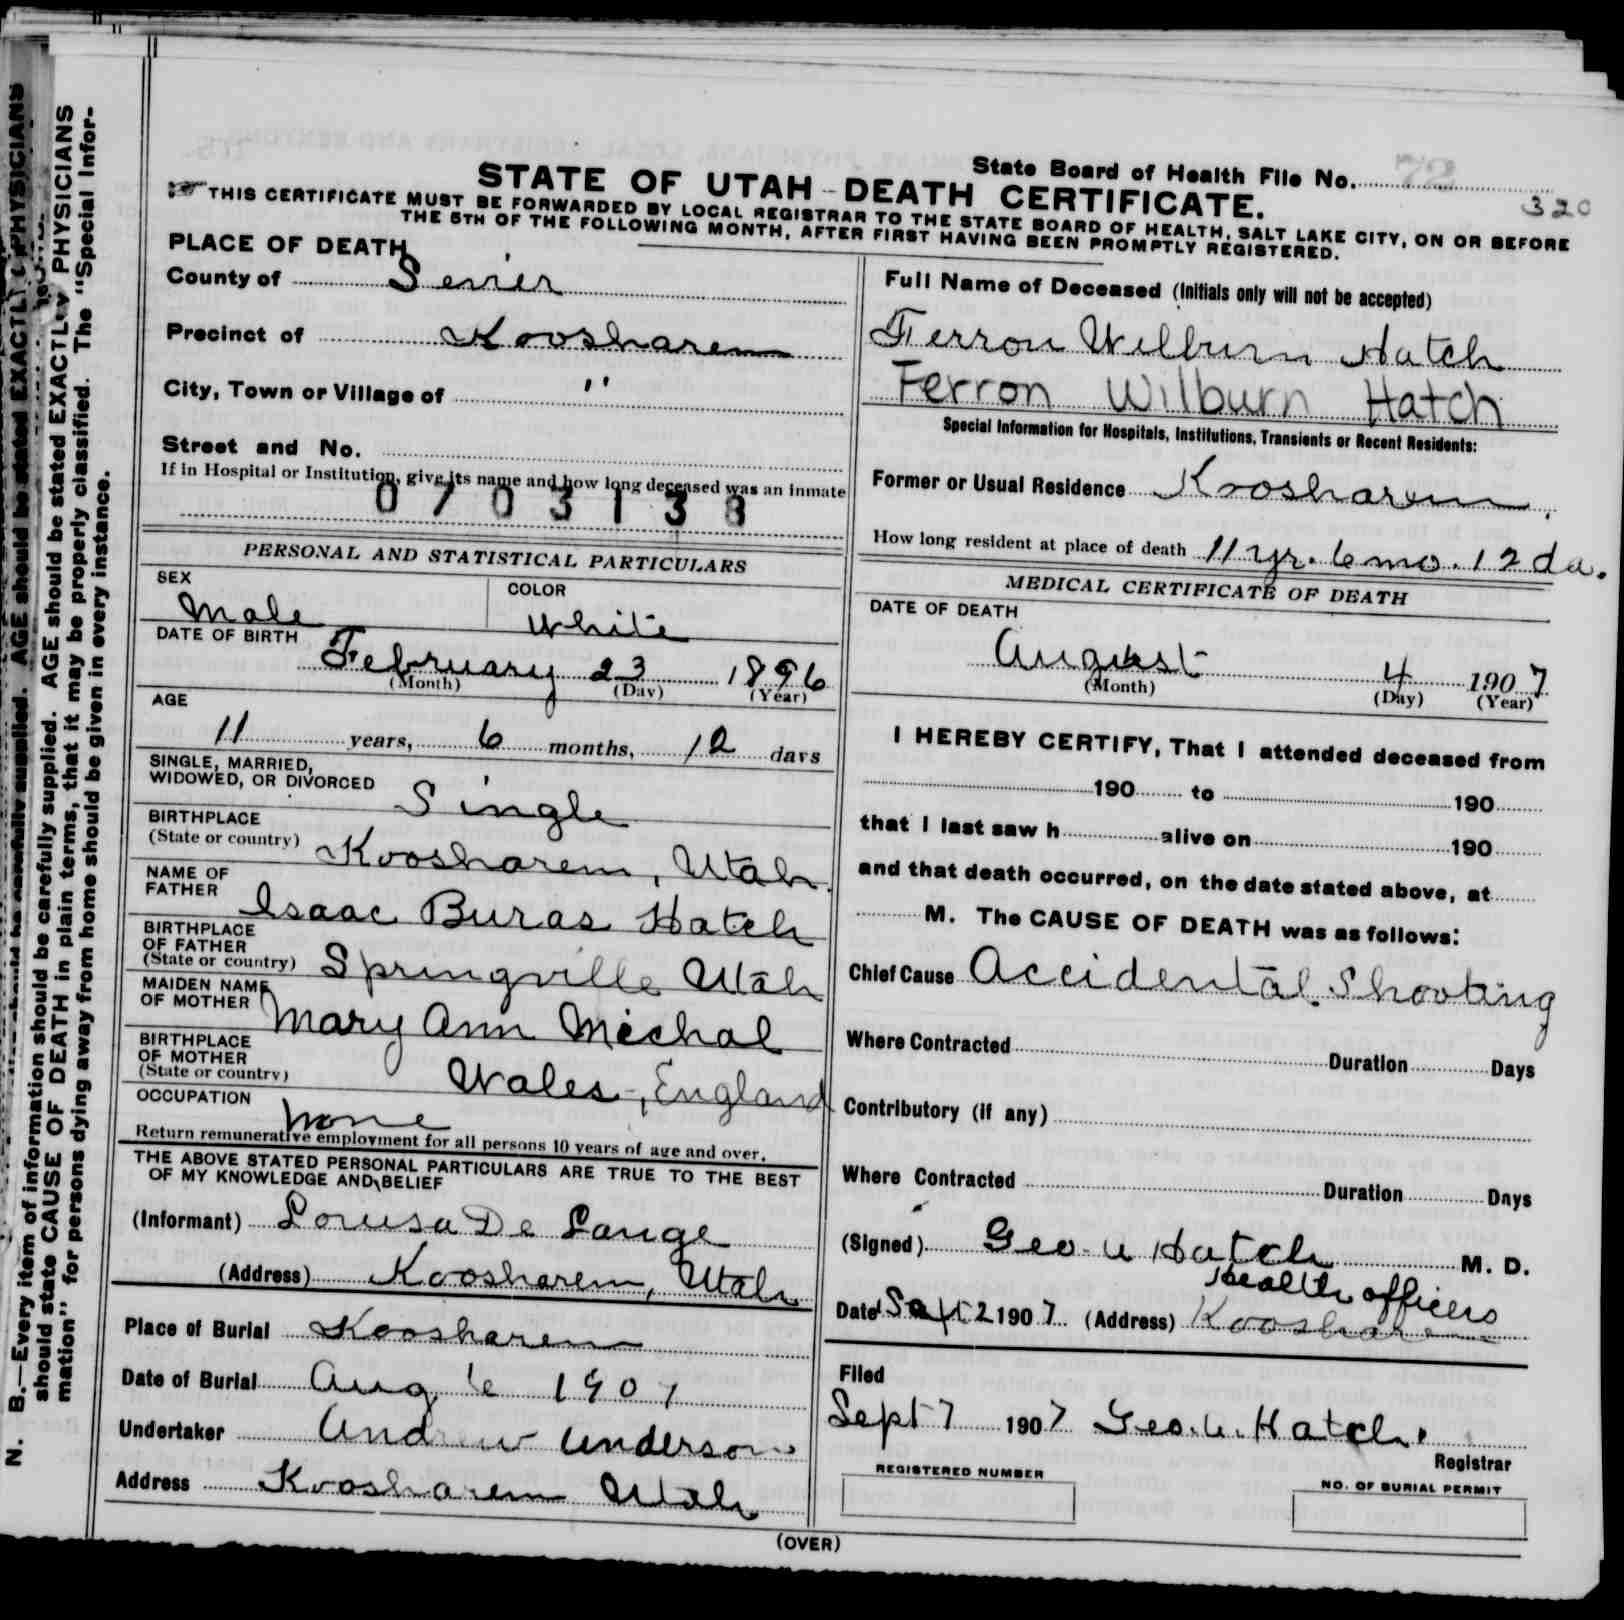 State Board of Health File No. 72
320
STATE OF UTAH - DEATH CERTIFICATE.
THIS CERTIFICATE MUST BE FORWARDED BY LOCAL REGISTRAR TO THE STATE BOARD OF HEALTH, SALT LAKE CITY, ON OR BEFORE
THE 5TH OF THE FOLLOWING MONTH, AFTER FIRST HAVING BEEN PROMPTLY REGISTERED.
PLACE OF DEATH
County of Sevier
Precinct of Koosharem
City, Town or Village of "
Street and No.
If in Hospital or Institution, give its name and how long deceased was an inmate
0703138
PERSONAL AND STATISTICAL PARTICULARS
SEX
Male
COLOR
White
DATE OF BIRTH
February 23 1896
(Month) (Day) (Year)
AGE
11 years, 6 months, 12 days
SINGLE, MARRIED,
WIDOWED, OR DIVORCED
Single
BIRTHPLACE
(State or country)
Koosharem, Utah.
NAME OF
FATHER
Isaac Buras Hatch
BIRTHPLACE
OF FATHER
(State or country)
Springville Utah
MAIDEN NAME
OF MOTHER
Mary Ann Mechal
BIRTHPLACE
OF MOTHER
(State or country)
Wales, England
OCCUPATION
None
Return remunerative employment for all persons 10 years of age and over.
THE ABOVE STATED PERSONAL PARTICULARS ARE TRUE TO THE BEST
OF MY KNOWLEDGE AND BELIEF
(Informant) Louisa De Lange
(Address) Koosharem, Utah
Place of Burial Koosharem
Date of Burial Aug 6 1907
Undertaker Andrew Anderson
Address Koosharem Utah
Full Name of Deceased (Initials only will not be accepted)
Ferron Wilburn Hatch
Ferron Wilburn Hatch
Special Information for Hospitals, Institutions, Transients or Recent Residents:
Former or Usual Residence Koosharem.
How long resident at place of death 11 yr. 6 mo. 12 da.
MEDICAL CERTIFICATE OF DEATH
DATE OF DEATH
August 4 1907
(Month) (Day) (Year)
I HEREBY CERTIFY, That I attended deceased from
190 to 190
that I last saw h alive on 190
and that death occurred, on the date stated above, at
M. The CAUSE OF DEATH was as follows:
Chief Cause Accidental Shooting
Where Contracted Duration Days
Contributory (if any)
Where Contracted Duration Days
(Signed) Geo. U Hatch M. D.
Health officers
Date Sept 2 1907 (Address) Koosharem
Filed
Sept 7 1907 Geo. U. Hatch.
Registrar
REGISTERED NUMBER
NO. OF BURIAL PERMIT
(OVER)
N. B.—Every item of information should be carefully supplied. AGE should be stated EXACTLY PHYSICIANS
should state CAUSE OF DEATH in plain terms, that it may be properly classified. The "Special Infor-
mation" for persons dying away from home should be given in every instance.